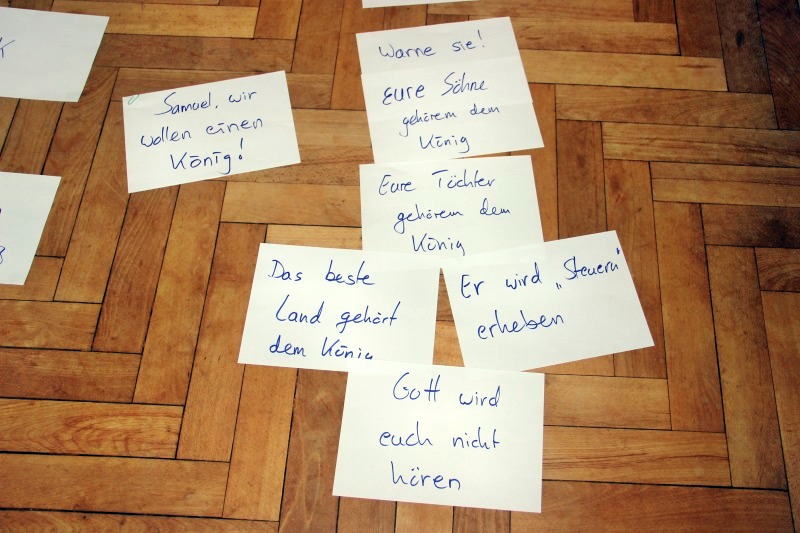 Samuel, wir
wollen einen
König!
Warne sie!
Eure Söhne
gehörem dem
König
Eure Töchter
gehörem dem
König
Das beste
Land gehört
dem König
Er wird „Steuern"
erheben
Gott wird
euch nicht
hören